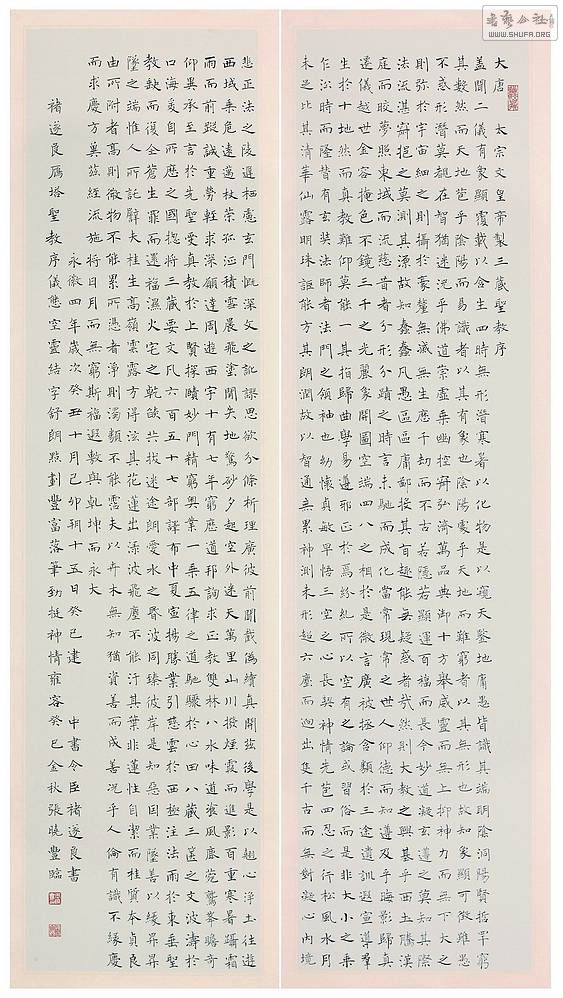 書藝公社
WWW.SHUFA.ORG
大唐 太宗文皇帝製三藏聖教序
盖聞二儀有象顯覆載以含生四時無形潛寒暑以化物是以窺天鑒地庸愚皆識其端明陰洞陽賢哲罕窮
其數然而天地苞乎陰陽而易識者以其有象也陰陽處乎天地而難窮者以其無形也故知象顯可徵雖愚
不惑形潛莫覩在智猶迷況乎佛道崇虛乘幽控寂弘濟萬品典御十方舉威靈而無上抑神力而無下大之
則弥於宇宙細之則攝於豪釐無滅無生歷千劫而不古若隱若顯運百福而長今妙道凝玄遵之莫知其際
法流湛寂挹之莫測其源故知蠢蠢凡愚區區庸鄙投其旨趣能無疑惑者哉然則大教之興基乎西土騰漢
庭而皎夢照東域而流慈昔者分形分蹟之時言未馳而成化當常現常之世人仰德而知遵及乎晦影歸真
遷儀越世金容掩色不鏡三千之光麗象開圖空端四八之相於是微言廣被拯含類於三途遺訓遐宣導群
生於十地然而真教難仰莫能一其指歸曲學易遵耶正於焉紛糺所以空有之論或習俗而是非大小之乘
乍沿時而隆替有玄奘法師者法門之領袖也幼懷貞敏早悟三空之心長契神情先苞四忍之行松風水月
未足比其清華仙露明珠詎能方其朗潤故以智通無累神測未形超六塵而迥出隻千古而無對凝心內境
悲正法之陵遲栖慮玄門慨深文之訛謬思欲分條析理廣彼前聞截偽續真開茲後學是以翹心淨土往遊
西域乘危遠邁杖策孤征積雪晨飛塗閒失地驚砂夕起空外迷天萬里山川撥煙霞而進影百重寒暑躡霜
雨而前蹤誠重勞輕求深願達周遊西宇十有七年窮歷道邦詢求正教雙林八水味道湌風鹿菀鷲峯瞻奇
仰異承至言於先聖受真教於上賢探賾妙門精窮奧業一乘五律之道馳驟於心田八藏三篋之文波濤於
口海爰自所歷之國捴將三藏要文凡六百五十七部譯布中夏宣揚勝業引慈雲於西極注法雨於東垂聖
教缺而復全蒼生罪而還福濕火宅之乾焰共拔迷途朗愛水之昏波同臻彼岸是知惡因業墜善以緣昇昇
墜之端惟人所託譬夫桂生高嶺雲露方得泫其花蓮出淥波飛塵不能汙其葉非蓮性自潔而桂質本貞良
由所附者高則微物不能累所憑者淨則濁類不能霑夫以卉木無知猶資善而成善況乎人倫有識不緣慶
而求慶方冀茲經流施將日月而無窮斯福遐敷與乾坤而永大
永徽四年歲次癸丑十月己卯朔十五日癸巳建 中書令臣褚遂良書
褚遂良鴈塔聖教序儀態空靈結字舒朗點劃豐富落筆勁挺神情雍容癸巳金秋張曉豐臨